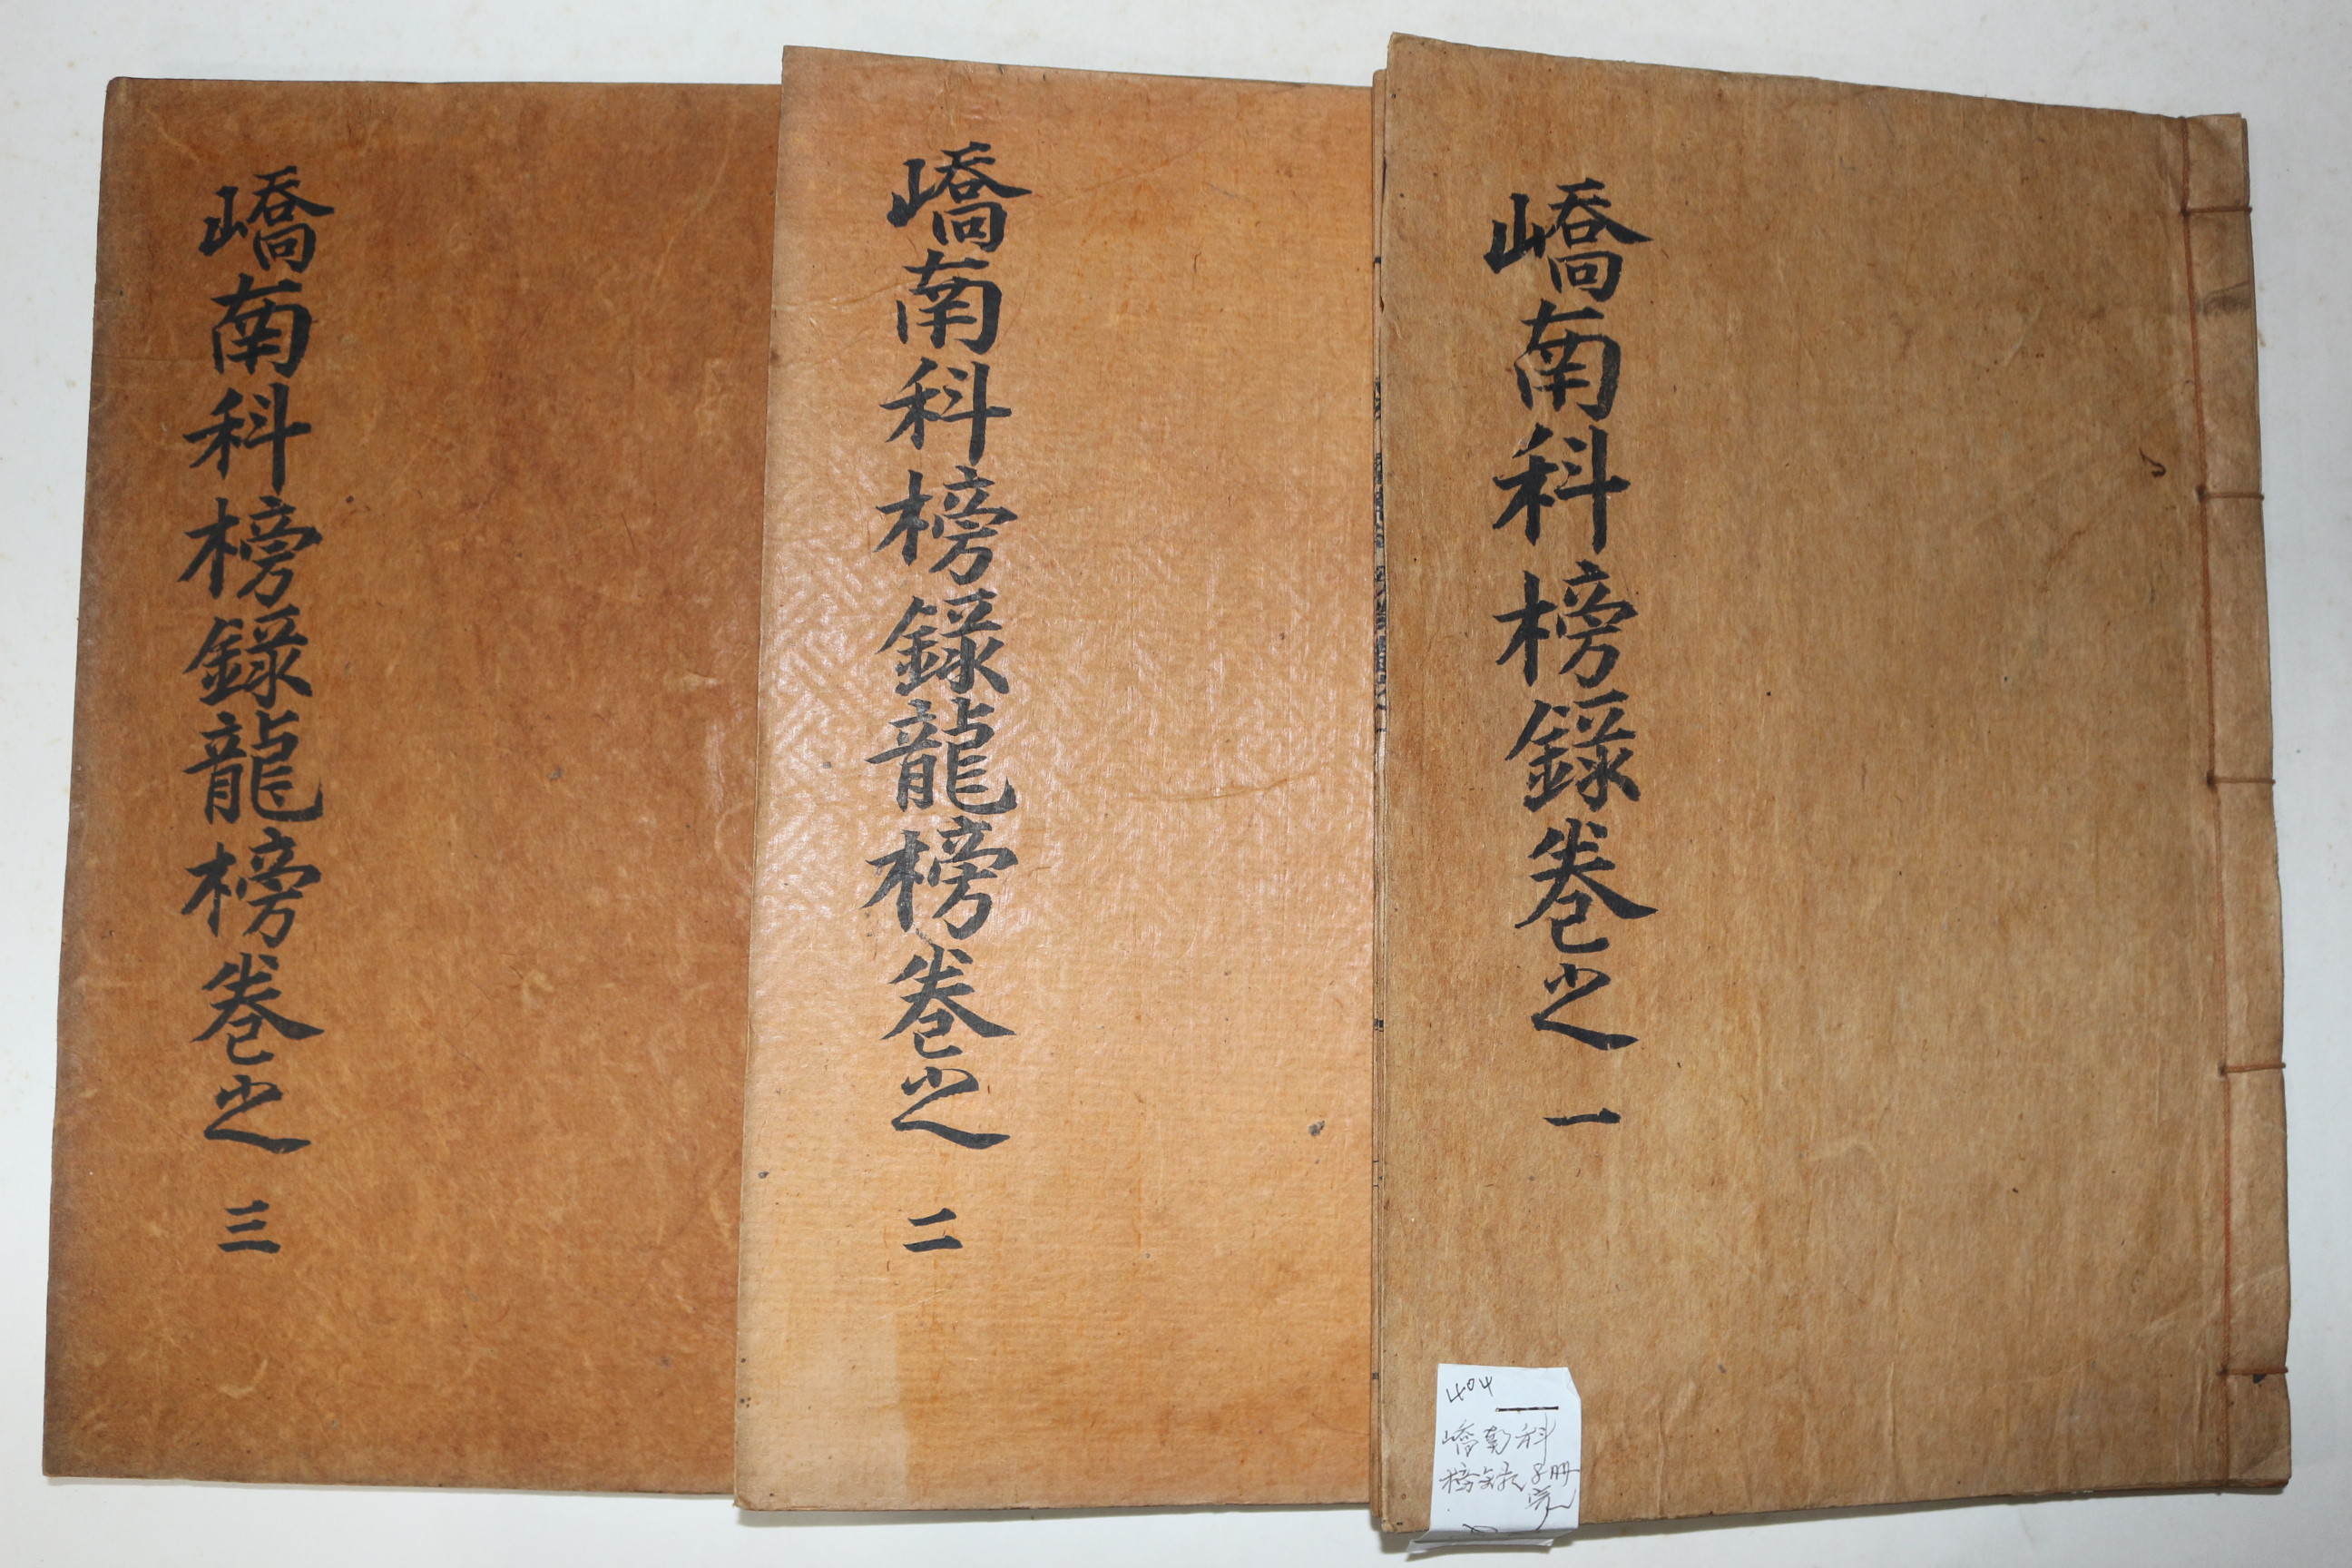 嶠南科榜錄卷之一
嶠南科榜錄龍榜卷之二
嶠南科榜錄龍榜卷之三
404
嶠南科
榜錄 冊
完